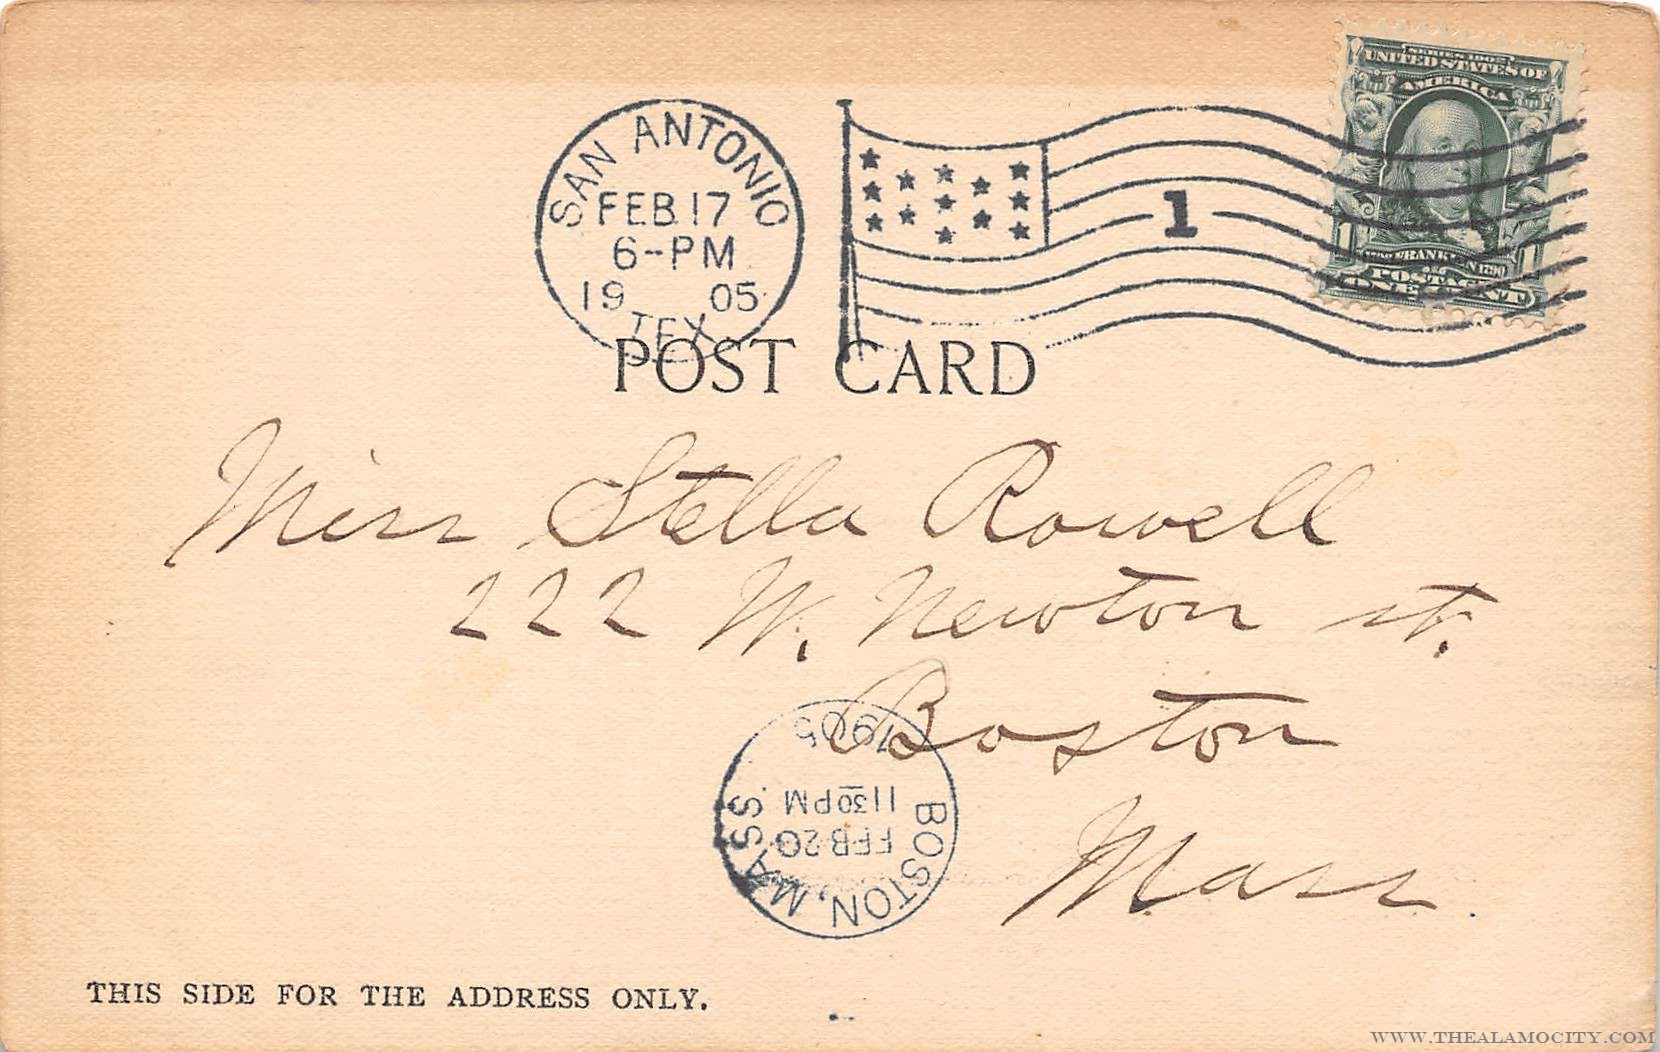 SERIES 1902
UNITED STATES OF
AMERICA
SAN ANTONIO
FEB 17
6-PM
1905
TEX
1
1 FRANKLIN 1790 1
POSTAGE
ONE CENT
POST CARD
Miss Stella Rowell
222 W. Newton st.
Boston
Mass.
BOSTON, MASS.
FEB 20
11 30 PM
1905
THIS SIDE FOR THE ADDRESS ONLY.
WWW.THEALAMOCITY.COM